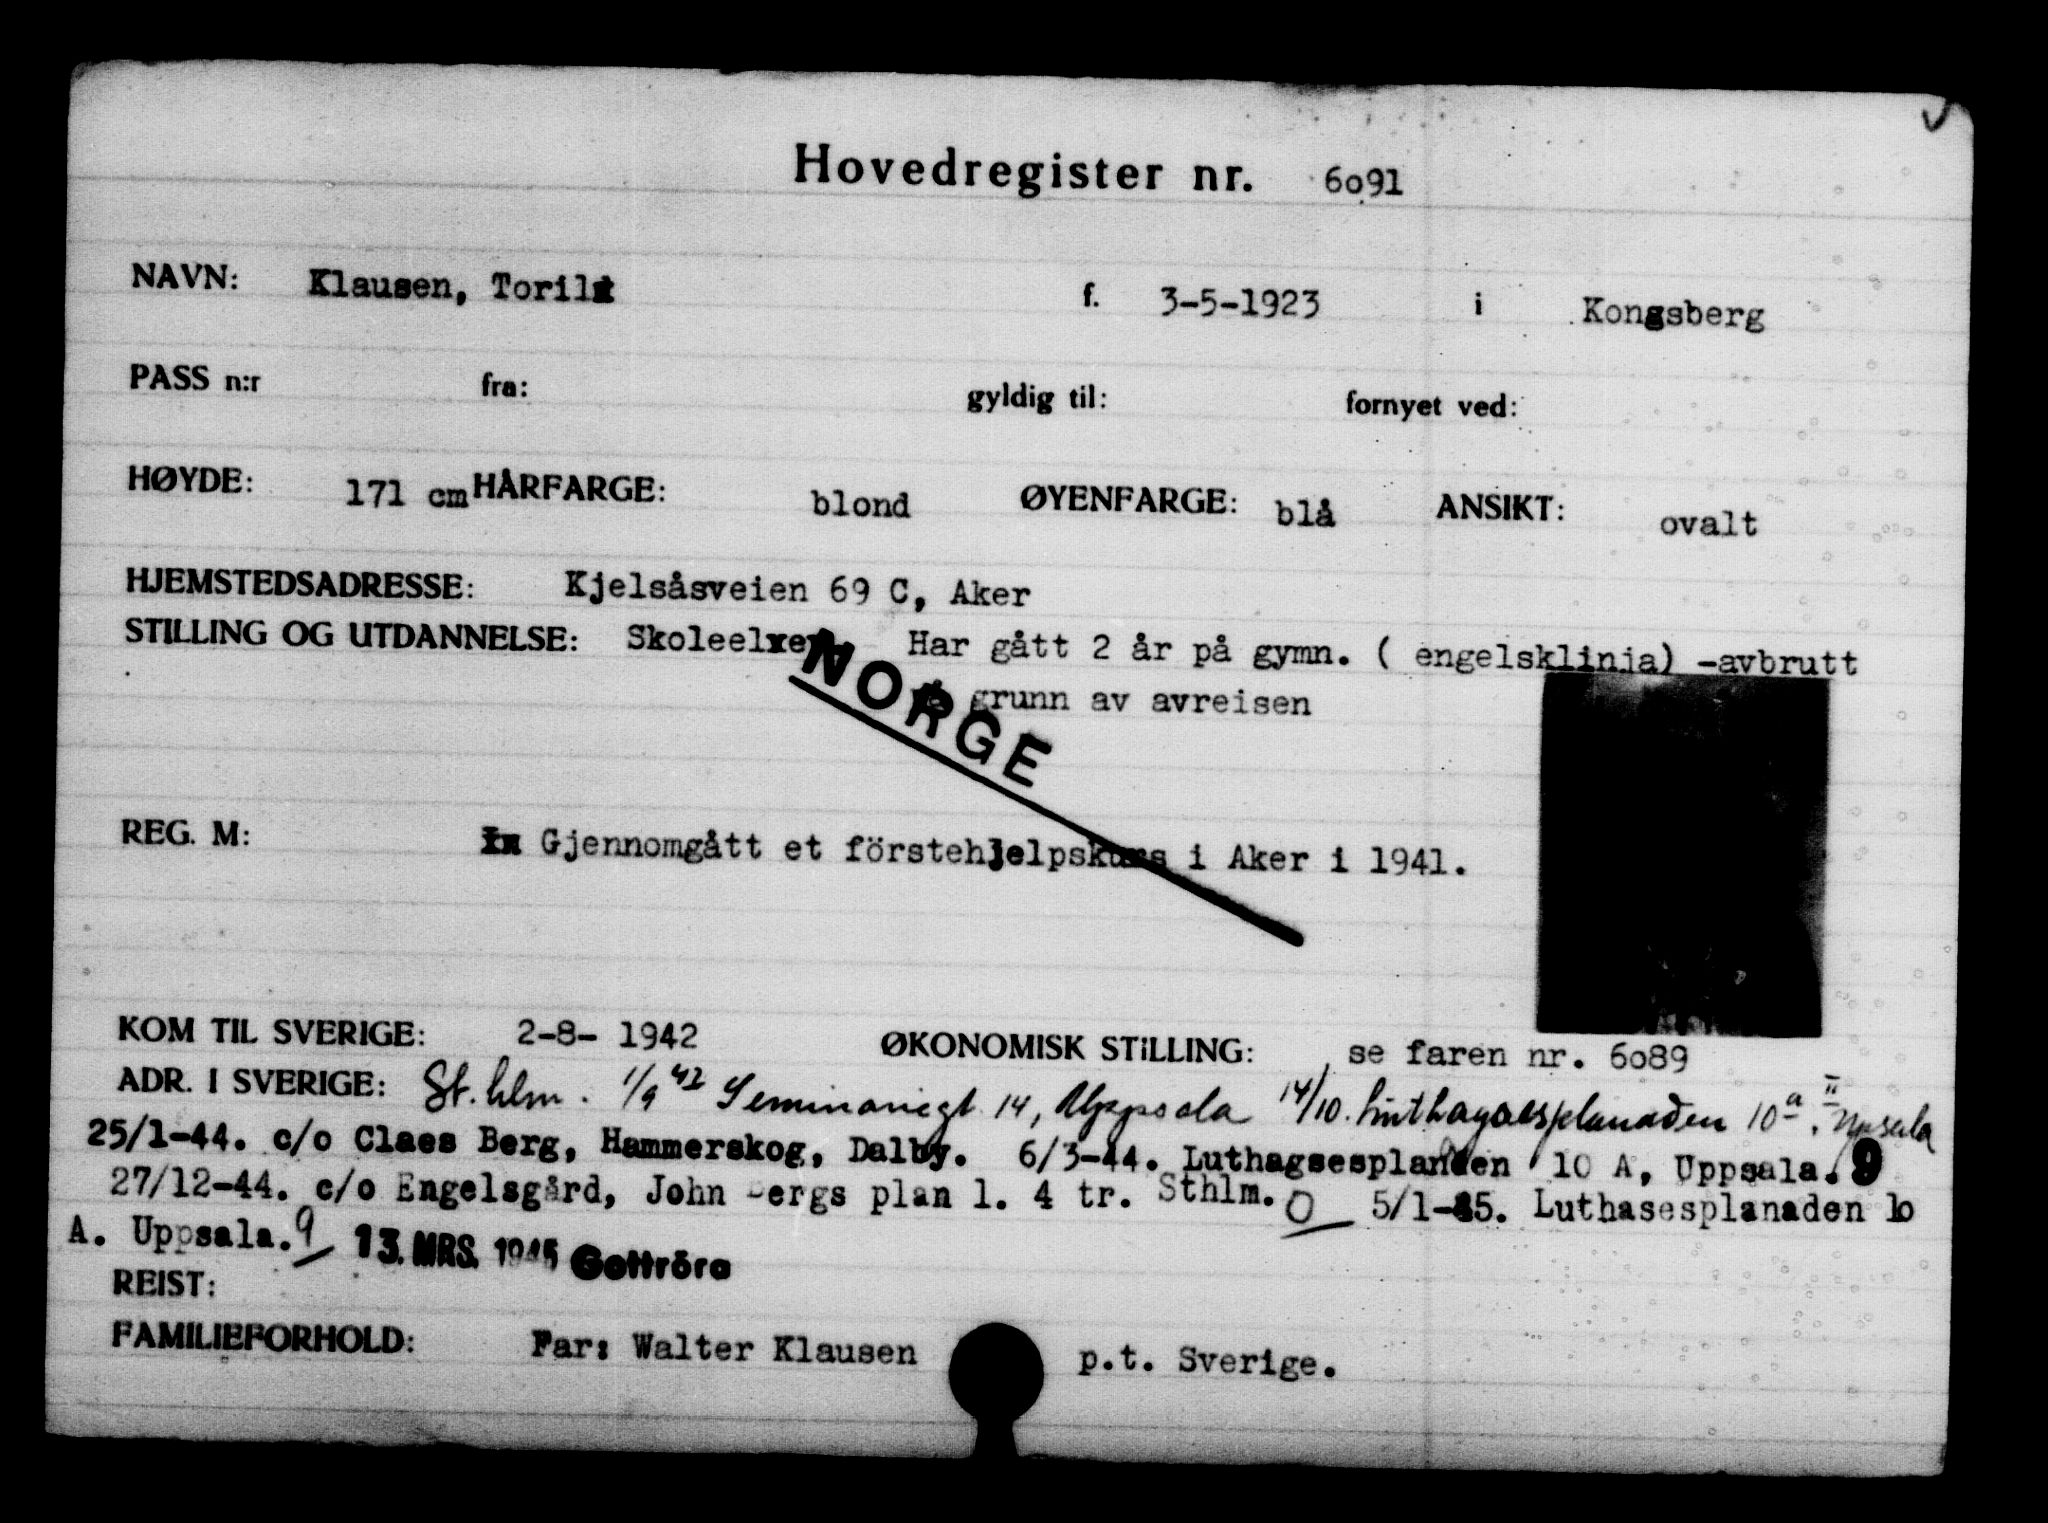 Hovedregister nr. 6o91
NAVN: Klausen, Toril f. 3-5-1923 i Kongsberg
PASS n:r fra: gyldig til: fornyet ved:
HØYDE: 171 cm HÅRFARGE: blond ØYENFARGE: blå ANSIKT: ovalt
HJEMSTEDSADRESSE: Kjelsåsveien 69 C, Aker
STILLING OG UTDANNELSE: Har gått 2 år på gymn. ( engelsklinja) -avbrutt
grunn av avreisen
NORGE
REG. M: Gjennomgått et förstehjelpskurs i Aker i 1941.
KOM TIL SVERIGE: 2-8- 1942 ØKONOMISK STiLLING: se faren nr. 6o89
ADR. I SVERIGE: St.hlm. 1/9 42 14, Uppsala 14/10. 10a II, Upsala
25/1-44. c/o Claes Berg, Hammerskog, Dalby. 6/3-44. Luthagsesplanden 10 A, Uppsala. 9
27/12-44. c/o Engelsgård, John Bergs plan 1. 4 tr. Sthlm. O 5/1-45. Luthasesplanaden lo
A. Uppsala. 9 13. MRS. 1945 Gottröra
REIST:
FAMILIEFORHOLD: Far: Walter Klausen p.t. Sverige.